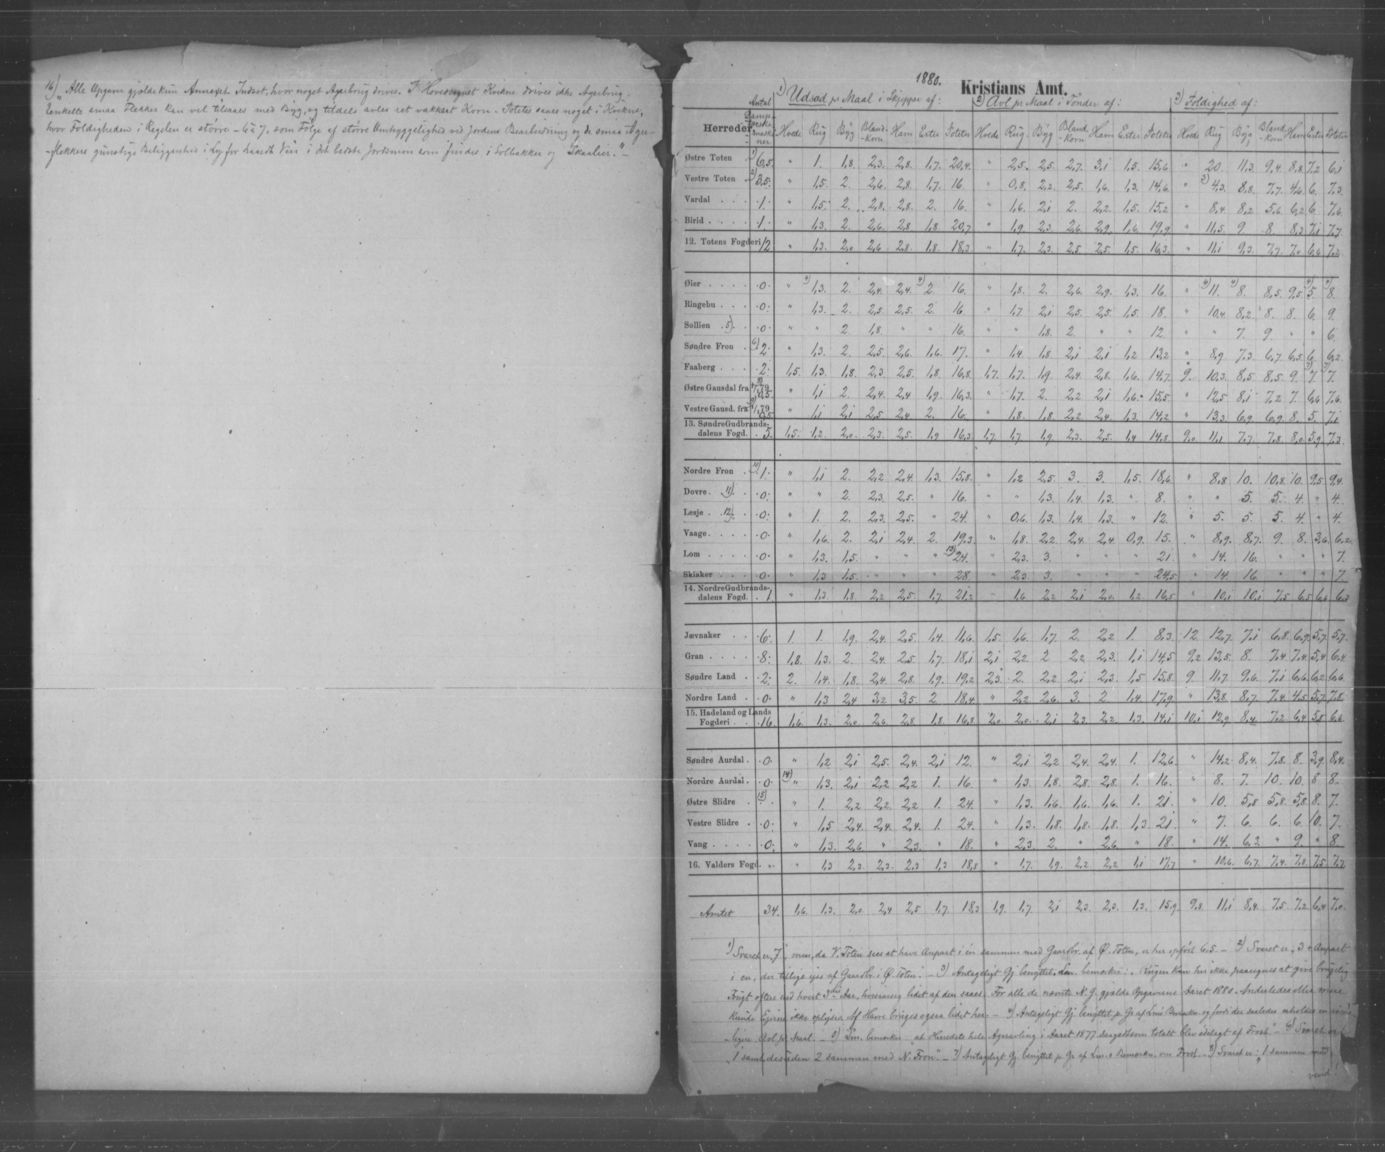 16) „Alle Opgaver gjælde kun Annexet Indset, hvor noget Agerbrug drives. I Hovedsognet Kvikne drives ikke Agerbrug.
Enkelte smaa Flekker kan vel tilsaaes med Byg, og tildels avles ret vakkert Korn. Potetes saaes noget i Kvikne,
hvor Foldigheden i Regelen er større – 6 à 7, som Følge af større Omhyggelighed ved Jordens Bearbeidning og de smaa Ager-
flekkers gunstige Beliggenhed i Ly for haardt Veir i det bedste Jordsmon som findes, i Solbakker og
1880. Kristians Amt.
1) Udsæd pr Maal i Skjepper af: 2) Avl pr Maal i Tønder af: 3) Foldighed af:
Herreder. Antal Hvede Rug Byg Bland-korn Havre Erter Poteter Hvede Rug Byg Bland-korn Havre Erter Poteter Hvede Rug Byg Bland-korn Havre Erter Poteter
Østre Toten 1) 6,5. " 1. 1,8. 2,3. 2,8. 1,7. 20,4. " 2,5. 2,5. 2,7. 3,1 1,5. 15,6 " 20. 11,3. 9,4 8,8 7,2 6,1
Vestre Toten 2) 3,5. " 1,5. 2. 2,6. 2,8. 1,7. 16. " 0,8. 2,2. 2,5. 1,6. 1,3. 14,6 " 3) 4,3. 8,8. 7,7 4,6 6. 7,3
Vardal 1. " 1,5. 2. 2,8. 2,8. 2. 16. " 1,6. 2,1 2. 2,2. 1,5. 15,2 " 8,4 8,2 5,6 6,2 6. 7,6
Birid 1. " 1,3. 2. 2,6. 2,8 1,8 20,7 " 1,9 2,3 2,6 2,9 1,6 19,9 " 11,5. 9 8 8,3 7,1 7,7
12. Totens Fogderi 12 " 1,3. 2,0 2,6 2,8. 1,8. 18,3 " 1,7. 2,3. 2,5 2,5 1,5 16,3 " 11,1 9,3 7,7 7,0 6,6 7,2
Øier 0. " 4) 1,3. 2. 2,4. 2,4. 4) 2. 16. " 1,8. 2. 2,6. 2,9. 1,3. 16. " 4) 11. 4) 8. 8,5. 9,5 4) 5. 4) 8.
Ringebu 0. " 1,3. 2. 2,5 2,5. 2. 16 " 1,7 2,1 2,5. 2,5. 1,5. 18. " 10,4. 8,2 8. 8. 6. 9.
Sollien 5) 0. " " 2 1,8. " " 16. " " 1,8. 2. " " 12 " " 7. 9. " " 6.
Søndre Fron 6) 2. " 1,3. 2. 2,5. 2,6. 1,6. 17. " 1,4. 1,8. 2,1 2,1 1,2 13,2 " 8,9 7,3 6,7 6,3 6. 6,2.
Faaberg 2. 1,5. 1,3. 1,8. 2,3 2,5. 1,8 16,8 1,7. 1,7. 1,9. 2,4. 2,8. 1,6. 14,7 9. 10,3. 8,5 8,5 9. 7. 7.
Østre Gausdal fra 1/1 79 0,5. " 1,1 2. 2,4. 2,4 1,9. 16,3. " 1,7. 2. 2,2. 2,1 1,6. 15,5 " 12,5 8,1 7,2 7. 6,6 7,6.
Vestre Gausd. fra 1/1 79 0,5. " 1,1 2,1 2,5 2,4 2. 16. " 1,8. 1,8. 2,2 2,4 1,3. 14,2 " 13,3 6,9 6,9 8. 5. 7,1
13. Søndre Gudbrands-dalens Fogd. 5. 1,5. 1,2. 2,0. 2,3. 2,5. 1,9 16,3 1,7 1,7 1,9 2,3. 2,5. 1,4 14,8 9,0 11,1 7,7. 7,8 8,0 5,9 7,3
Nordre Fron 10) 1. " 1,1 2. 2,2 2,4. 1,3. 15,8. " 1,2 2,5. 3. 3. 1,5. 18,6 " 8,8 10. 10,8 10. 9,5 9,4.
Dovre 11) 0. " " 2. 2,3. 2,5. " 16. " " 1,3. 1,4. 1,3. " 8. " " 5. 5. 4. " 4.
Lesje 12) 0. " 1. 2. 2,3. 2,5. " 24. " 0,6. 1,3. 1,4. 1,3. " 12. " 5. 5. 5. 4. " 4.
Vaage 0. " 1,6. 2. 2,1 2,4 2. 19,3 " 1,8. 2,2. 2,4. 2,4 0,9. 15. " 8,9. 8,7. 9. 8. 3,6 6,2
Lom 0. " 1,3. 1,5. " " " 13) 24. " 2,3. 3. " " " 21 " 14. 16. " " " 7.
Skiaker 0. " 1,3 1,5. " " " 28 " 2,3 3. " " " 24,5 " 14 16 " " " 7
14. Nordre Gudbrands-dalens Fogd. 1 " 1,3. 1,8. 2,2 2,5. 1,7 21,2 " 1,6 2,2 2,1 2,0. 1,2 16,5 " 10,1 10,1 7,5 6,5 6,6 6,3
Jævnaker 6. 1. 1. 1,9. 2,4. 2,5. 1,4. 11,6. 1,5. 1,6. 1,7. 2. 2,2 1. 8,3. 12. 12,7. 7,1 6,8. 6,9 5,7. 5,7.
Gran 8. 1,8. 1,3. 2. 2,4. 2,5. 1,7. 18,1 2,1 2,2. 2 2,2 2,3. 1,1 14,5 9,2 13,5 8. 7,4 7,4 5,4 6,4
Søndre Land 2. 2. 1,4. 1,8. 2,4 2,8. 1,9. 19,2 2,3. 2. 2,2 2,1 2,3. 1,5 15,8 9. 11,7. 9,6 7,1 6,6 6,2 6,6
Nordre Land 0. " 1,3 2,4 3,2 3,5. 2 18,4 " 2,2 2,6. 3. 2 1,4 17,9 " 13,8. 8,7. 7,4 4,5 5,7 7,8.
15. Hadeland og Lands Fogderi 16 1,6 1,3. 2,0 2,6 2,8 1,8. 16,8 2,0. 2,0. 2,1 2,3 2,2 1,3. 14,1 10,1 12,9 8,4 7,2 6,4 5,8 6,6
Søndre Aurdal 0. " 1,2 2,1 2,5. 2,4. 2,1 12. " 2,1 2,2 2,4. 2,4. 1. 12,6. " 14,2 8,4. 7,8. 8. 3,9 8,4.
Nordre Aurdal 0. 14) " 1,3. 2,1 2,2 2,2 1. 16. " 1,3. 1,8. 2,8. 2,8. 1. 16. " 8. 7. 10. 10. 8 8.
Østre Slidre 15) " 1. 2,2 2,2 2,2 1. 24. " 1,3. 1,6. 1,6. 1,6. 1. 21. " 10. 5,8 5,8. 5,8 8. 7.
Vestre Slidre 0. " 1,5 2,4. 2,4. 2,4. 1. 24. " 1,3. 1,8. 1,8. 1,8. 1,3 21. " 7. 6. 6. 6. 10. 7.
Vang 0. " 1,3. 2,6. " 2,3. " 18. " 2,3 2. " 2,6. " 18. " 14. 6,2. " 9. " 8
16. Valders Fogd. " " 1,3 2,3. 2,3. 2,3 1,3 18,8 " 1,7. 1,9. 2,2 2,2 1,1 17,7 " 10,6. 6,7. 7,4. 7,8. 7,5 7,7.
Amtet 34. 1,6. 1,3. 2,0 2,4 2,5 1,7. 18,3 1,9. 1,7 2,1 2,3 2,3. 1,3. 15,9. 9,8 11,1 8,4. 7,5 7,2 6,4 7,0.
1) Svaret er „7", men, da V. Toten sees at have Anpart i én sammen med Gaardbr. af Ø. Toten, er her opført 6,5. – 2) Svaret er „3 + Anpart
i en, der tillige eies af Gaardbr. i Ø. Toten." – 3) Antageligt Gj. benyttet. Len. bemærker: „Rugen kan her ikke paaregnes at give brugelig
Frugt oftere end hvert 3die Aar, hvorimod lidet af den saaes. For alle de nævnte N. G. gjælde Opgaverne Aaret 1880. Anderledes eller
kunde Eierne ikke oplyse. Af Havre bruges ogsaa lidet her. – 4) Antageligt Gj. benyttet p. Gr. af Len's Bemærkn.
Avl pr. Maal. – 5) Len. bemærker „at Herredets hele Ageravling i Aaret 1877 saagodtsom totalt blev ødelagt af Frost." – 6) Svaret er
„1 samt desuden 2 sammen med N. Fron". – 7) Antageligt Gj. benyttet p. Gr. af Len's Bemærkn. om Frost. – 8) Svaret er: „1 sammen med
vend!